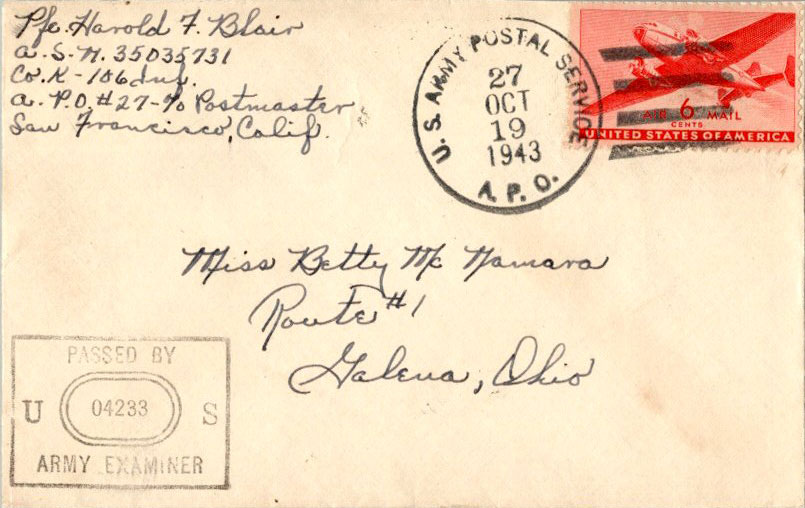 Pfc. Harold F. Blair
A.S.N. 35035731
Co. K - 106 Inf.
A.P.O. #27 - % Postmaster
San Francisco, Calif.
U.S. ARMY POSTAL SERVICE
27
OCT
19
1943
A.P.O.
AIR 6 MAIL
CENTS
UNITED STATES OF AMERICA
Miss Betty Mc Namara
Route #1
Galena, Ohio
PASSED BY
U 04233 S
ARMY EXAMINER